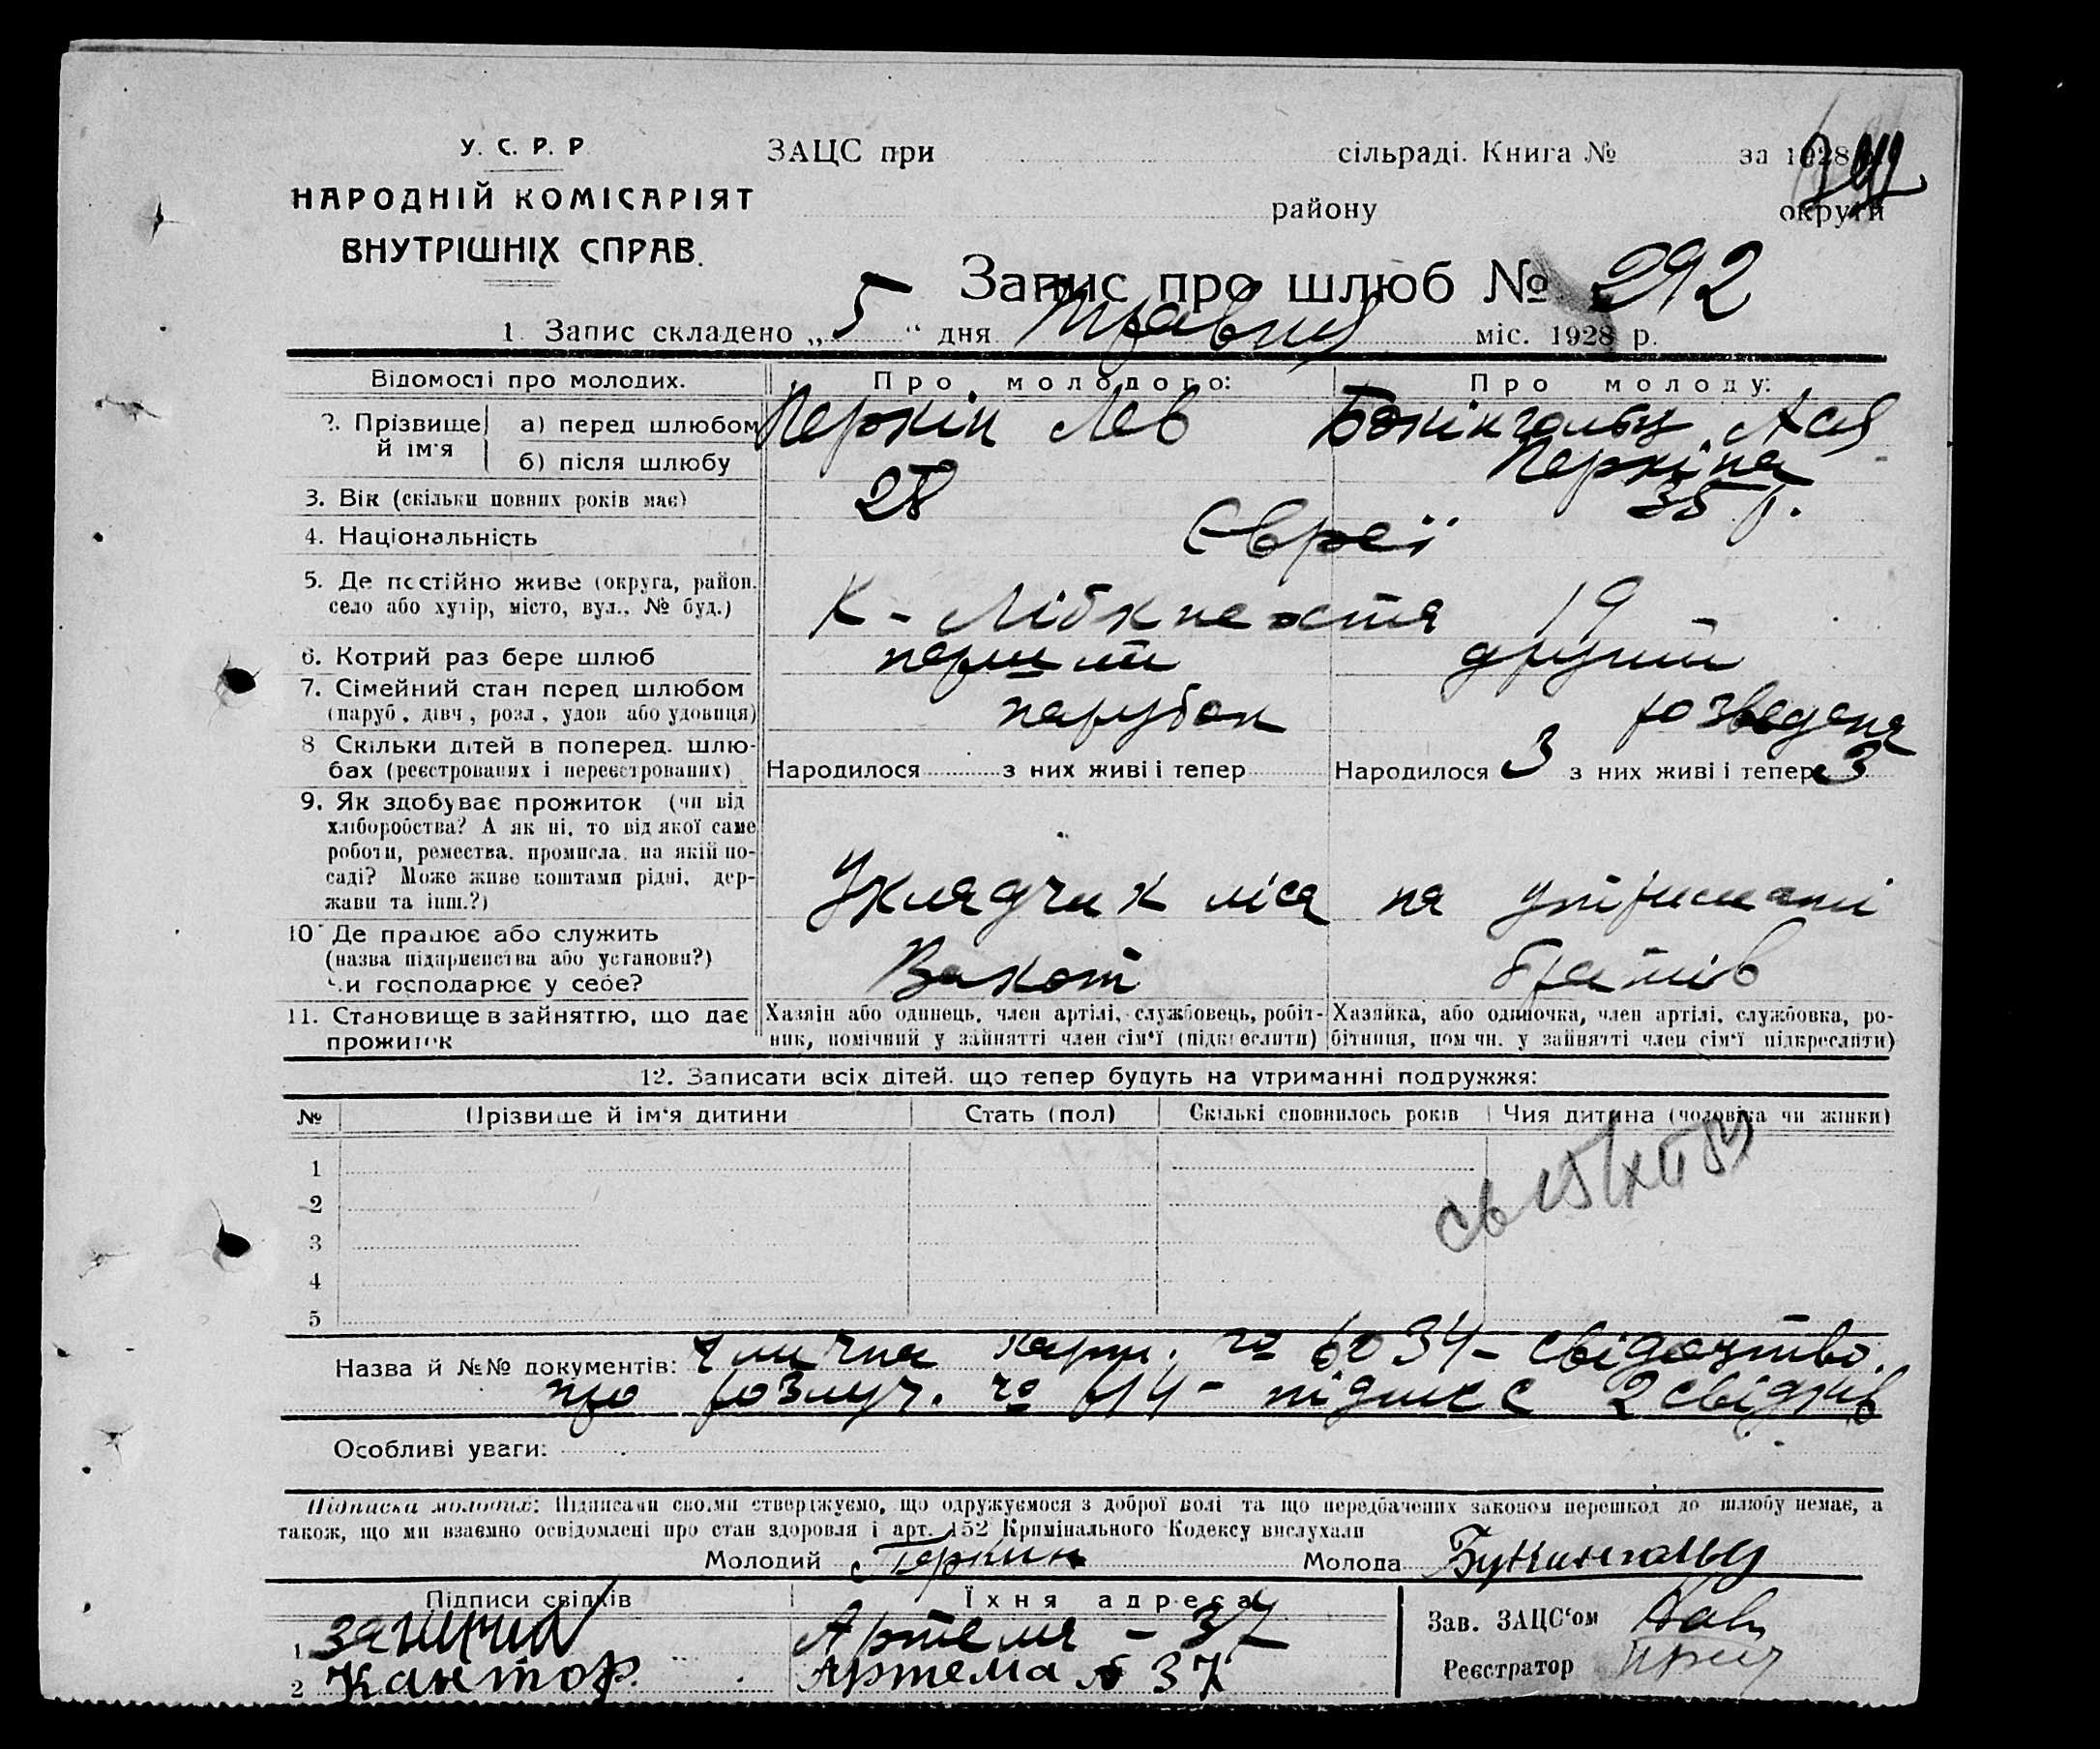 У. С. Р. Р.
НАРОДНІЙ КОМІСАРІЯТ
ВНУТРІШНІХ СПРАВ.
ЗАЦС при сільраді. Книга № за 1928
району округи
Запис про шлюб № 292
1. Запис складено „5“ дня Травня міс. 1928 р.
Відомості про молодих. Про молодого: Про молоду:
2. Прізвище й ім'я а) перед шлюбом Перкін Лев Ася
б) після шлюбу Перкіна
3. Вік (скільки повних років має) 28 35 р.
4. Національність Євреї
5. Де постійно живе (округа, район, село або хутір, місто, вул., № буд.) К-Лібкнехта 19
6. Котрий раз бере шлюб перший другий
7. Сімейний стан перед шлюбом (паруб., дівч., розл., удов. або удовиця) парубок розведена
8. Скільки дітей в поперед. шлюбах (реєстрованих і нереєстрованих) Народилося з них живі і тепер Народилося 3 з них живі і тепер 3
9. Як здобуває прожиток (чи від
хліборобства? А як ні, то від якої саме
роботи, ремества, промисла, на якій по-
саді? Може живе коштами рідні, дер-
жави та інш.?) Укладчик ліса на утриманні
10. Де працює або служить
(назва підприємства або установи?)
Чи господарює у себе? братів
11. Становище в зайняттю, що дає прожиток
Хазяін або одинець, член артілі, службовець, робіт-
ник, помічний у зайнятті член сім'ї (підкреслити)
Хазяйка, або одиночка, член артілі, службовка, ро-
бітниця, помічн. у зайнятті член сім'ї підкреслити)
12. Записати всіх дітей, що тепер будуть на утриманні подружжя:
№ Прізвище й ім'я дитини Стать (пол) Скількі сповнилось років Чия дитина (чоловіка чи жінки)
1
2
3
4
5
Назва й №№ документів: карт. № 6034 - свідоцтво
про розлуч. № 414 - підпис 2 свідків
Особливі уваги:
Підписка молодих: Підписами своїми стверджуємо, що одружуємося з доброї волі та що передбачених законом перешкод до шлюбу немає, а
також, що ми взаємно освідомлені про стан здоровля і арт. 152 Кримінального Кодексу вислухали
Молодий Перкин Молода
Підписи свідків Їхня адреса
1 Артема - 37
2 Кантор. Артема № 37
Зав. ЗАЦС'ом
Реєстратор